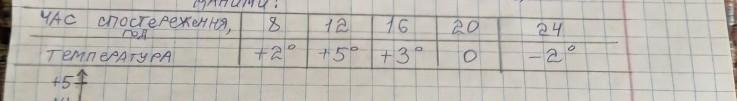 ДАНИМИ:
ЧАС СПОСТЕРЕЖЕННЯ, ГОД 8 12 16 20 24
ТЕМПЕРАТУРА +2° +5° +3° 0 -2°
+5